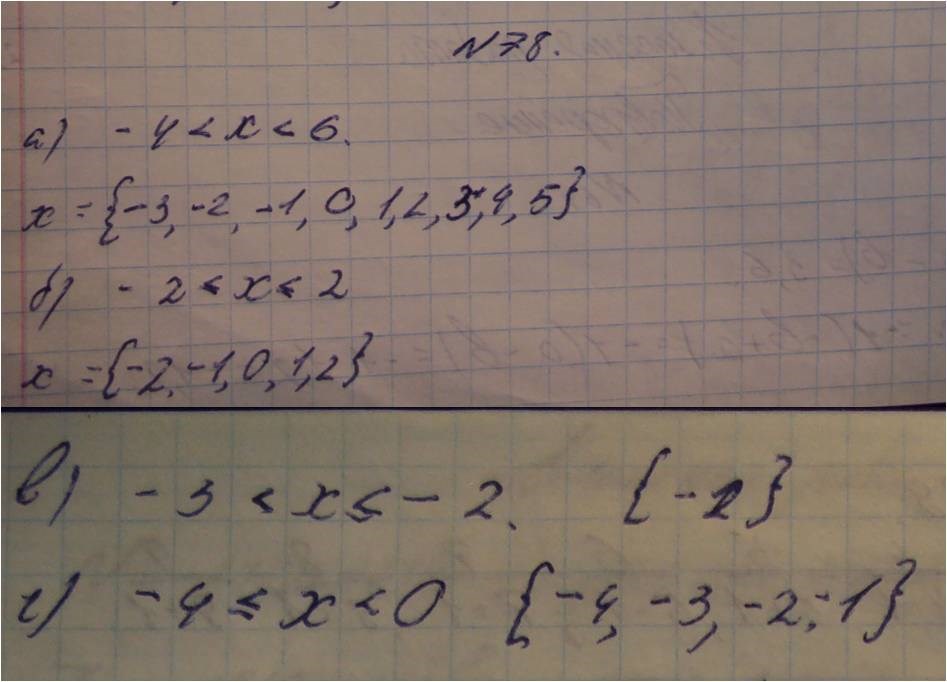 N78.
а) -4 < x < 6.
x = {-3, -2, -1, 0, 1, 2, 3, 4, 5}
б) - 2 ≤ x ≤ 2
x = {-2, -1, 0, 1, 2}
в) -3 < x ≤ -2. {-2}
г) -4 ≤ x < 0 {-4, -3, -2, -1}